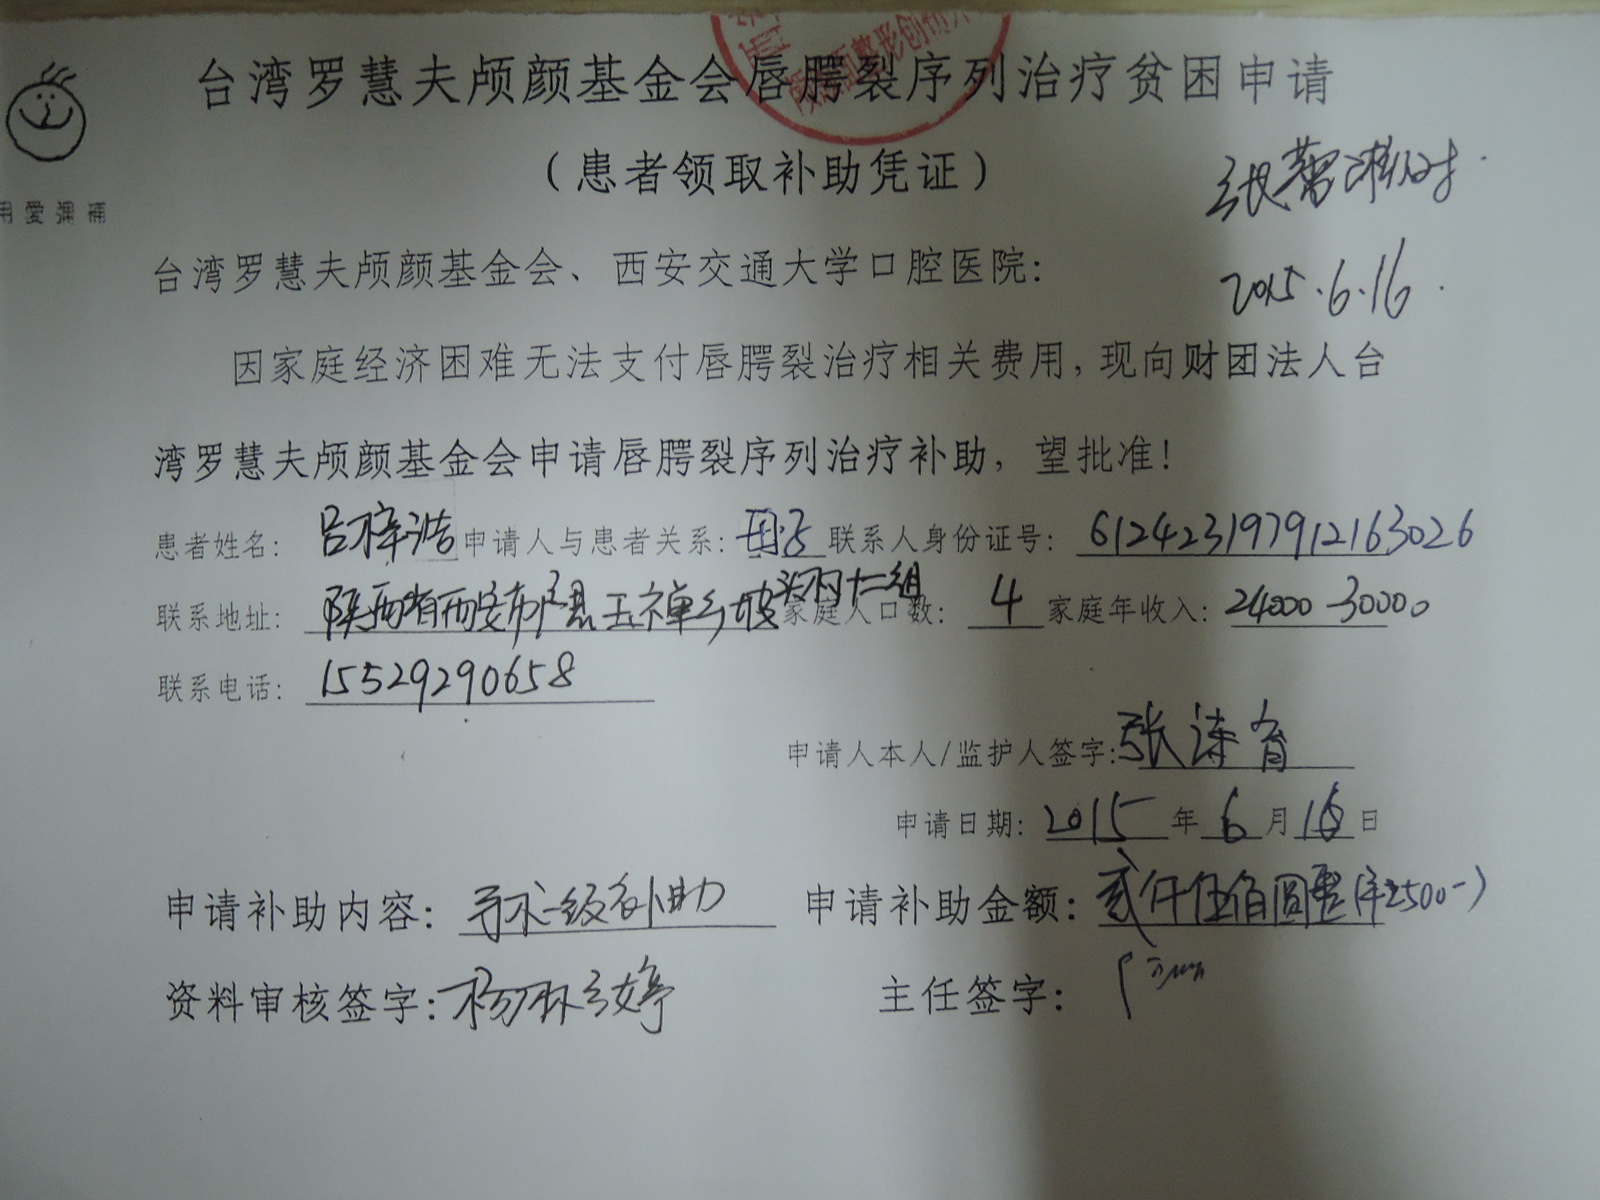 台湾罗慧夫颅颜基金会唇腭裂序列治疗贫困申请
（患者领取补助凭证）
用愛彌補
2015.6.16.
台湾罗慧夫颅颜基金会、西安交通大学口腔医院：
因家庭经济困难无法支付唇腭裂治疗相关费用，现向财团法人台
湾罗慧夫颅颜基金会申请唇腭裂序列治疗补助，望批准！
患者姓名：吕梓浩 申请人与患者关系：母子 联系人身份证号：612423197912163026
联系地址：陕西省西安市户县玉禅乡坡头村十二组 家庭人口数：4 家庭年收入：24000-30000
联系电话：15529290658
申请人本人/监护人签字：张涛育
申请日期：2015年6月16日
申请补助内容：手术一级补助 申请补助金额：贰仟伍佰圆整（¥2500-）
资料审核签字：杨 婷 主任签字：